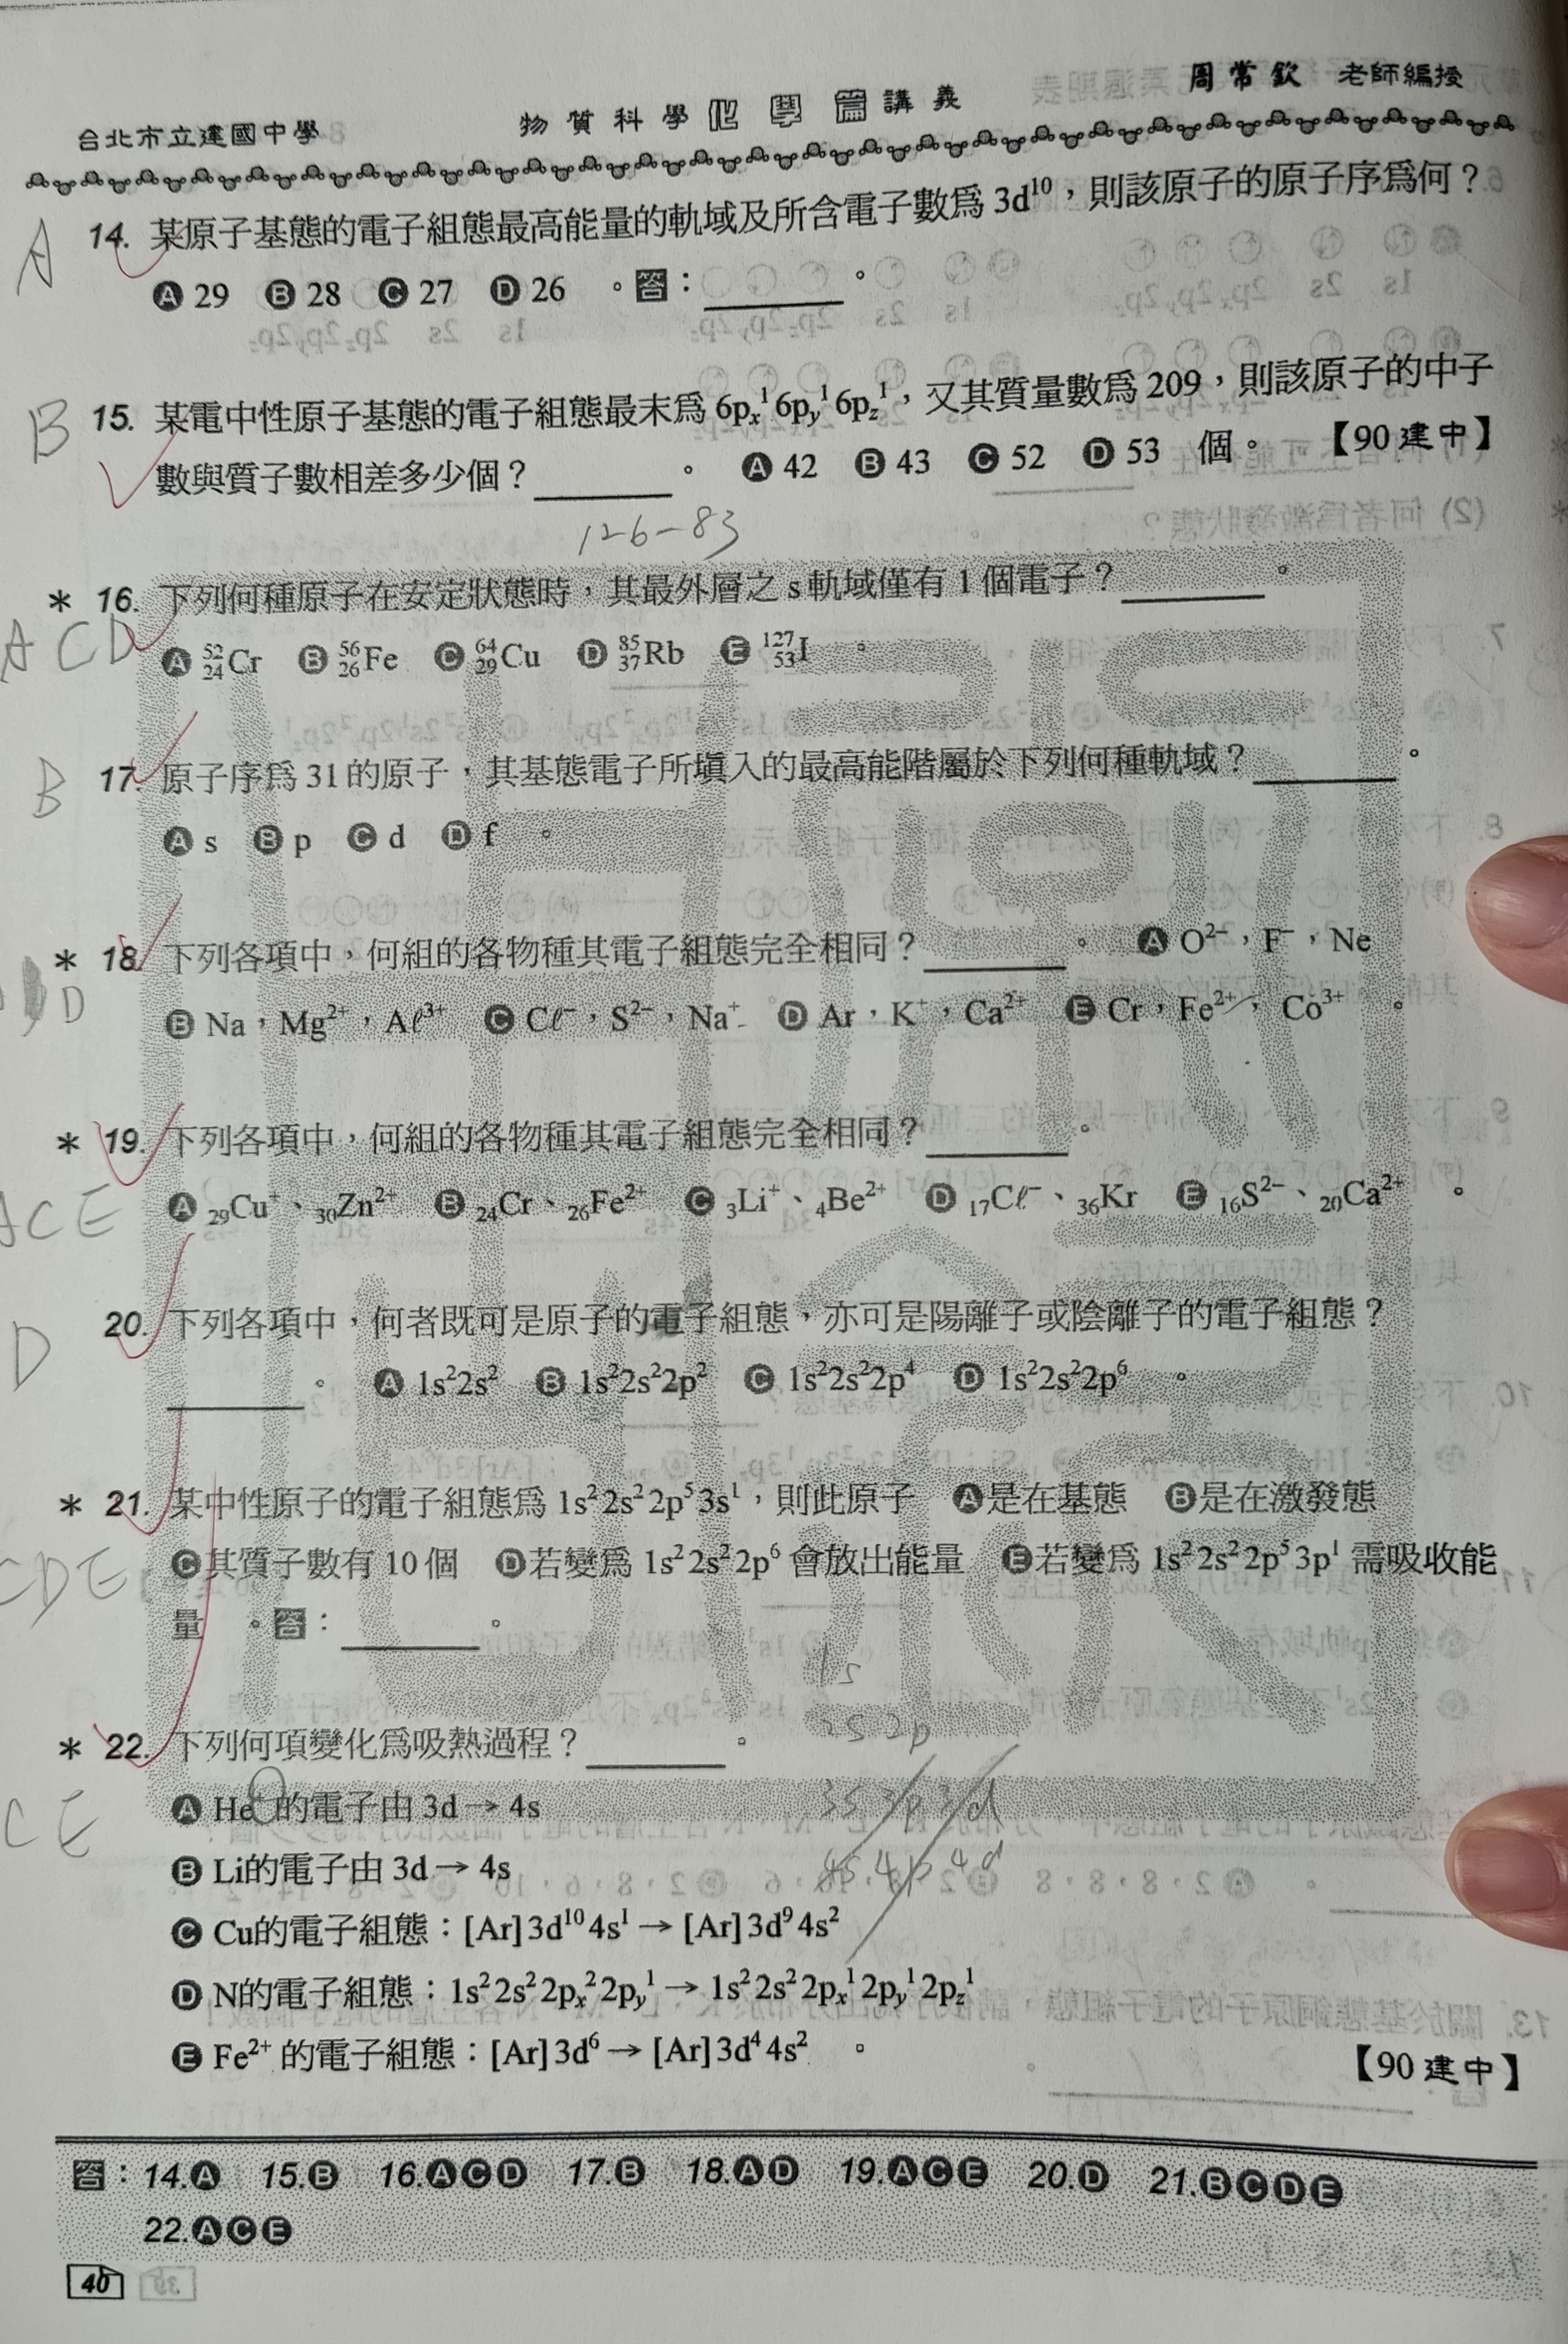 台北市立建國中學 物質科學化學篇講義 周常欽 老師編授
A 14. 某原子基態的電子組態最高能量的軌域及所含電子數爲 3d¹⁰，則該原子的原子序爲何？
Ⓐ 29 Ⓑ 28 Ⓒ 27 Ⓓ 26 。答：______。
B 15. 某電中性原子基態的電子組態最末爲 6pₓ¹6pᵧ¹6p_z¹，又其質量數爲 209，則該原子的中子
數與質子數相差多少個？______。 Ⓐ 42 Ⓑ 43 Ⓒ 52 Ⓓ 53 個。 【90 建中】
126-83
* 16. 下列何種原子在安定狀態時，其最外層之 s 軌域僅有 1 個電子？______。
ACD Ⓐ ⁵²₂₄Cr Ⓑ ⁵⁶₂₆Fe Ⓒ ⁶⁴₂₉Cu Ⓓ ⁸⁵₃₇Rb Ⓔ ¹²⁷₅₃I 。
B 17. 原子序爲 31 的原子，其基態電子所填入的最高能階屬於下列何種軌域？______。
Ⓐ s Ⓑ p Ⓒ d Ⓓ f 。
* 18. 下列各項中，何組的各物種其電子組態完全相同？______。 Ⓐ O²⁻，F⁻，Ne
D Ⓑ Na，Mg²⁺，Aℓ³⁺ Ⓒ Cℓ⁻，S²⁻，Na⁺ Ⓓ Ar，K⁺，Ca²⁺ Ⓔ Cr，Fe²⁺，Co³⁺ 。
* 19. 下列各項中，何組的各物種其電子組態完全相同？______。
ACE Ⓐ ₂₉Cu⁺、₃₀Zn²⁺ Ⓑ ₂₄Cr、₂₆Fe²⁺ Ⓒ ₃Li⁺、₄Be²⁺ Ⓓ ₁₇Cℓ⁻、₃₆Kr Ⓔ ₁₆S²⁻、₂₀Ca²⁺ 。
D 20. 下列各項中，何者既可是原子的電子組態，亦可是陽離子或陰離子的電子組態？
______。 Ⓐ 1s²2s² Ⓑ 1s²2s²2p² Ⓒ 1s²2s²2p⁴ Ⓓ 1s²2s²2p⁶ 。
* 21. 某中性原子的電子組態爲 1s²2s²2p⁵3s¹，則此原子 Ⓐ是在基態 Ⓑ是在激發態
CDE Ⓒ其質子數有 10 個 Ⓓ若變爲 1s²2s²2p⁶ 會放出能量 Ⓔ若變爲 1s²2s²2p⁵3p¹ 需吸收能
量 。答：______。
1s
* 22. 下列何項變化爲吸熱過程？______。
2s 2p
Ⓐ He的電子由 3d → 4s
3s 3p 3d
CE
Ⓑ Li的電子由 3d → 4s
4s 4p 4d
Ⓒ Cu的電子組態：[Ar]3d¹⁰4s¹ → [Ar]3d⁹4s²
Ⓓ N的電子組態：1s²2s²2pₓ²2pᵧ¹ → 1s²2s²2pₓ¹2pᵧ¹2p_z¹
Ⓔ Fe²⁺ 的電子組態：[Ar]3d⁶ → [Ar]3d⁴4s² 。 【90 建中】
答：14.Ⓐ 15.Ⓑ 16.ⒶⒸⒹ 17.Ⓑ 18.ⒶⒹ 19.ⒶⒸⒺ 20.Ⓓ 21.ⒷⒸⒹⒺ
22.ⒶⒸⒺ
40